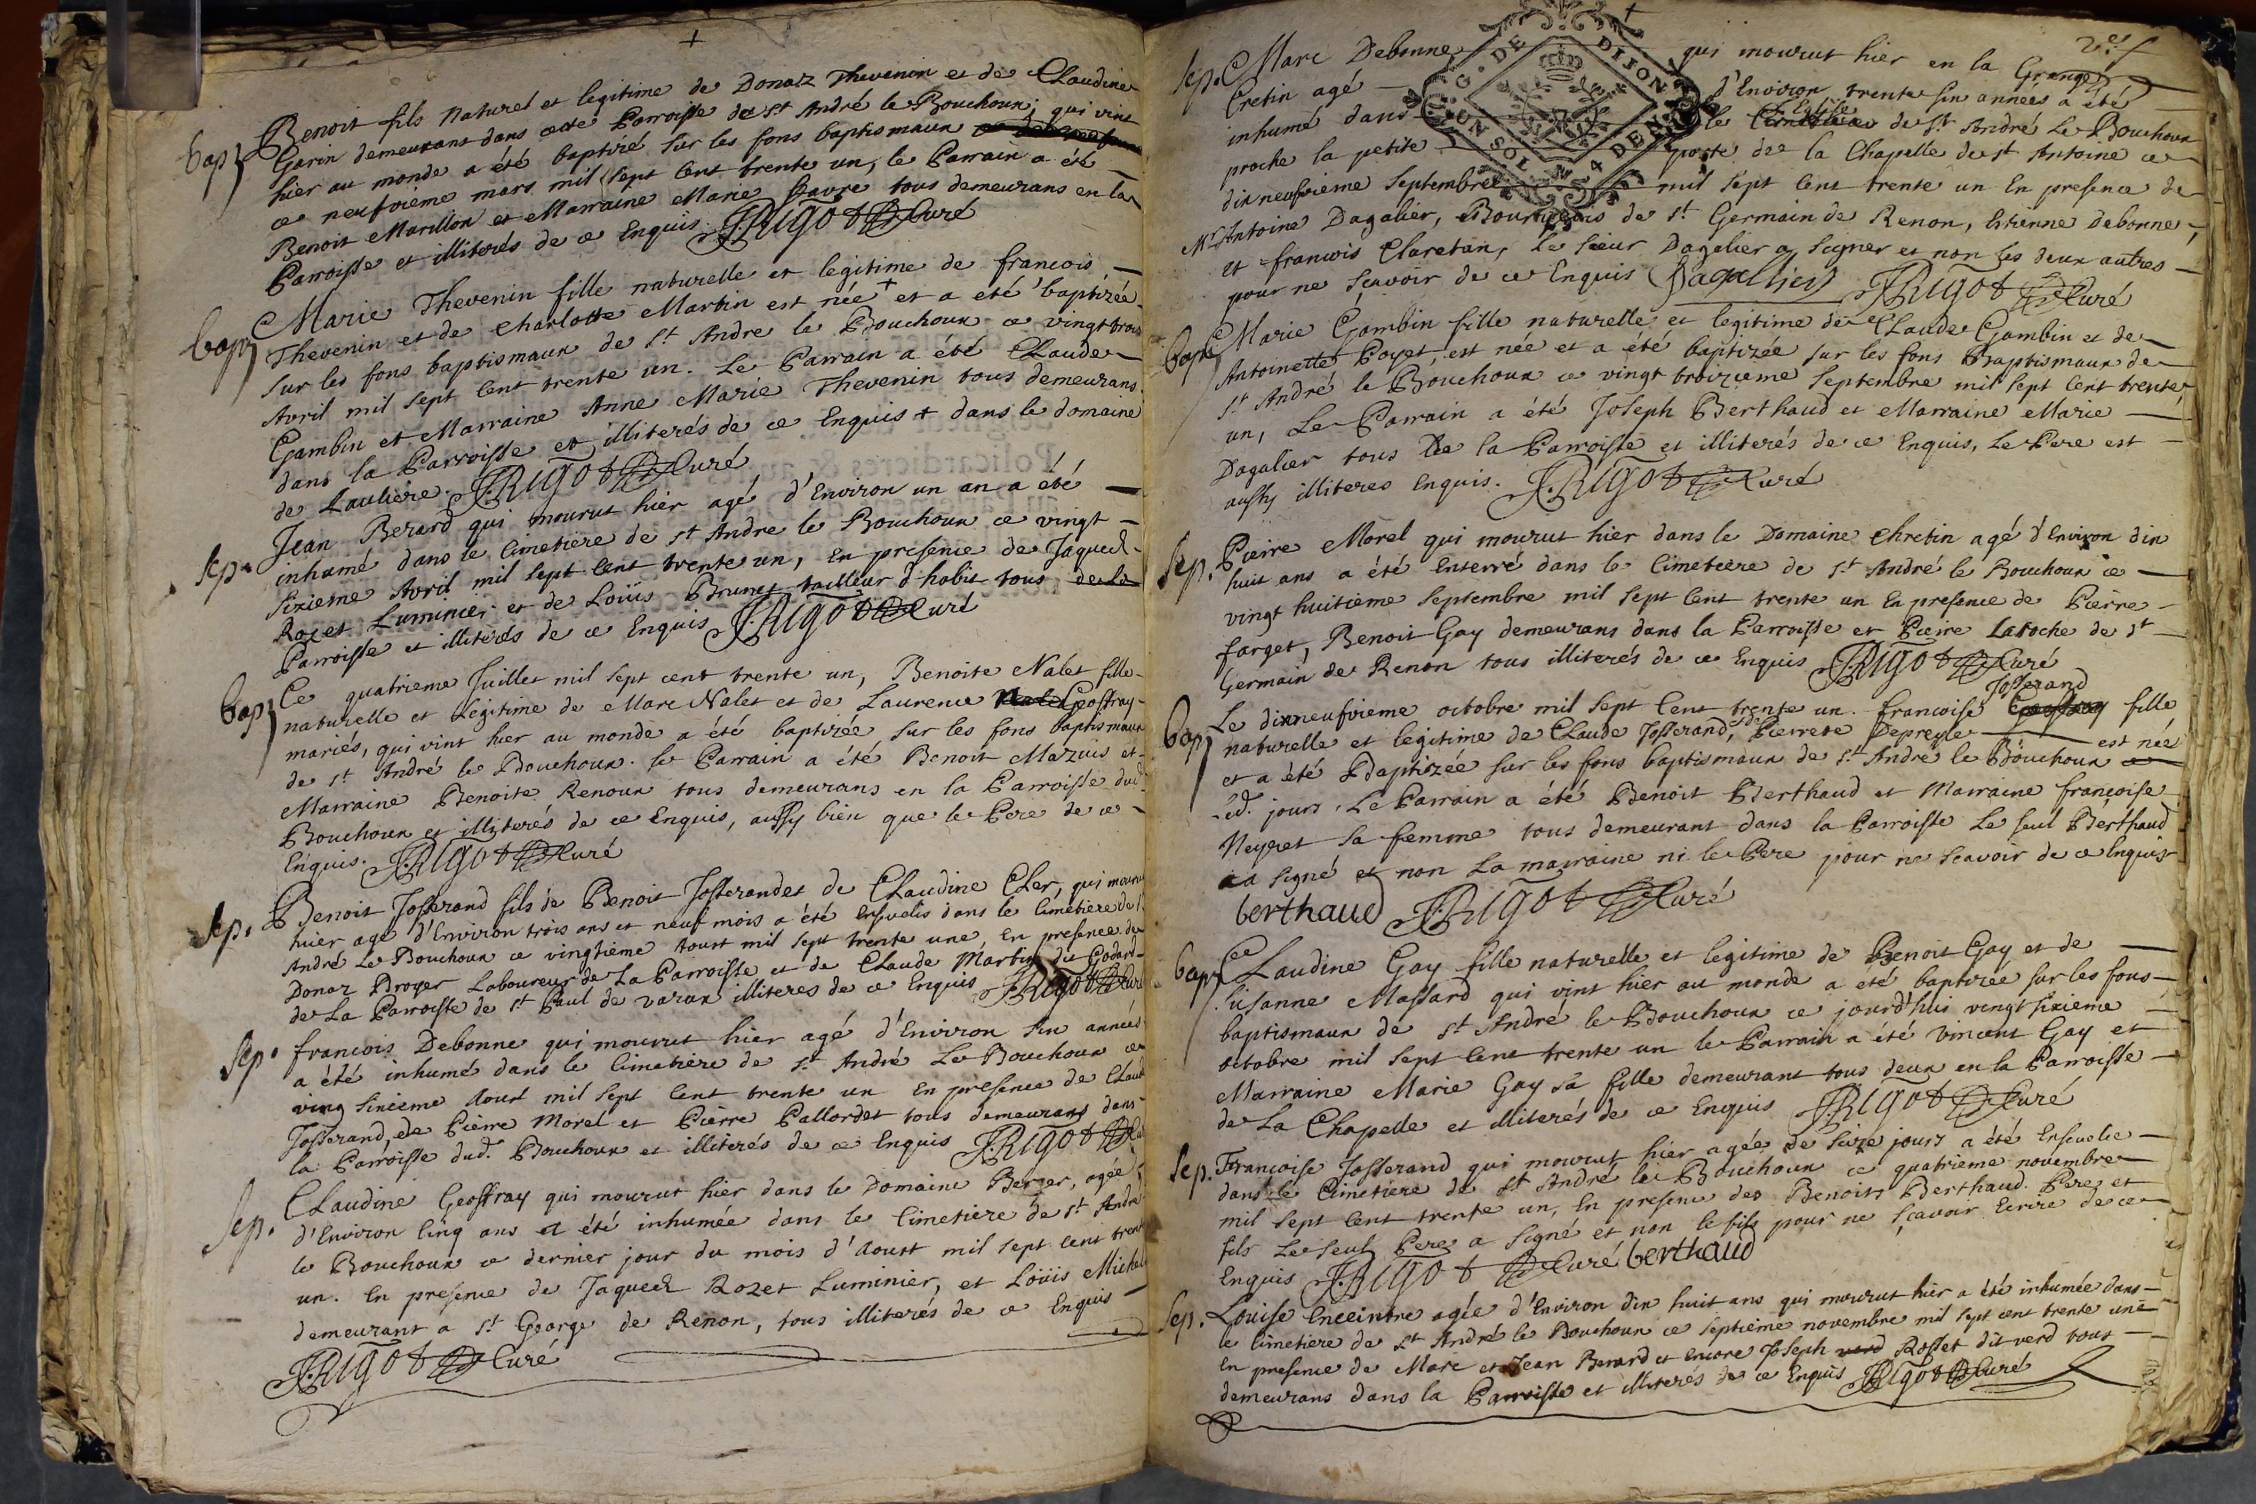 bap Benoit fils naturel et legitime de Donaz Thevenin et de Claudine
Garin demeurant dans cette Parroisse de St André le Bouchoux, qui vint
hier au monde a été baptizé sur les fons baptismaux
ce neufvieme mars mil sept cent trente un, le Parrain a été
Benoit Marillon et Marraine Marie favre tous demeurans en la
Parroisse et illiterés de ce Enquis. J. RIGOT Curé
bap Marie Thevenin fille naturelle et legitime de francois
Thevenin et de Charlotte Martin est née + et a eté baptizée
sur les fons baptismaux de St André le Bouchoux ce vingt trois
Avril mil sept cent trente un. Le Parrain a été Claude
Gambin et Marraine Anne Marie Thevenin tous demeurans
dans la Parroisse et illiterés de ce Enquis + dans le domaine
de Lauliere. J. RIGOT Curé
Sep. Jean Berard qui mourut hier agé d'Environ un an a été
inhumé dans le Cimetiere de St André le Bouchoux ce vingt
sixieme Avril mil sept cent trente un, en presence de Jaques
Rozet Luminier et de Loüis Brunet tailleur d'habit tous de la
Parroisse et illiterés de ce Enquis J. RIGOT Curé
bap Ce quatrieme Juillet mil sept cent trente un, Benoite Nalet fille
naturelle et Legitime de Marc Nalet et de Laurence Geoffray
mariés, qui vint hier au monde a été baptizée sur les fons baptismaux
de St André le Bouchoux. le Parrain a été Benoit Mazuis et
Marraine Benoite Renoux tous demeurans en la Parroisse dud
Bouchoux et illiterés de ce Enquis, aussy bien que le Pere de ce
Enquis. J. RIGOT Curé
Sep. Benoit Josserand fils de Benoit Josserand et de Claudine Cler, qui mourut
hier agé d'Environ trois ans et neuf mois a été Ensevelis dans le Cimetiere de St
André Le Bouchoux ce vingtieme Aoust mil sept trente une En presence de
Donaz Broyer Laboureur de La Parroisse et de Claude Martin dit Godard
de La Parroisse de St Paul de varax illiteres de ce Enquis J. RIGOT Curé
Sep. francois Debonne qui mourut hier agé d'Environ six années
a été inhumé dans le Cimetiere de St André Le Bouchoux ce
ving sixieme Aout mil sept Cent trente un En presence de Claude
Josserand, de Pierre Morel et Pierre Pallordet tous demeurans dans
la Parroisse dud. Bouchoux et illiterés de ce Enquis J. RIGOT
Sep. Claudine Geoffray qui mourut hier dans le Domaine Berger, agée
d'Environ Cinq ans a été inhumée dans le Cimetiere de St André
le Bouchoux ce dernier jour du mois d'Aoust mil sept Cent trente
un. En presence de Jaques Rozet Luminier, et Loüis Michel
demeurant a St George de Renon, tous illiterés de ce Enquis
J. RIGOT Curé
Sep. Marc Debonne qui mourut hier en la Grange
Cretin agé d'Environ trente six années a été
Eglise
inhumé dans le Cimetiere de St André Le Bouchoux
proche la petite porte de la Chapelle de St Antoine ce
dixneufvieme Septembre mil sept Cent trente un En presence de
Mr Antoine Dagalier, Bourgeois de St Germain de Renon, Etienne Debonne,
et francois Claretan, le sieur Dagalier a signer et non les deux autres
pour ne sçavoir de ce Enquis Dagallier J. RIGOT Curé
G. DE DIJON
UN SOL 4 DEN
bap Marie Gambin fille naturelle et legitime de Claude Gambin et de
Antoinette Poyet, est née et a été baptizée sur les fons Baptismaux de
St André le Bouchoux ce vingt troizieme Septembre mil sept Cent trente
un, Le Parrain a été Joseph Berthaud et Marraine Marie
Dagalier tous de la Parroisse et illiterés de ce Enquis, Le Pere est
aussy illiteres Enquis. J. RIGOT Curé
Sep. Pierre Morel qui mourut hier dans le Domaine Chretin agé d'Environ dix
huit ans a été Enterré dans le Cimetiere de St André le Bouchoux ce
vingt huitieme Septembre mil sept Cent trente un En presence de Pierre
farget, Benoit Gay demeurans dans la Parroisse et Pierre Laroche de St
Germain de Renon tous illiterés de ce Enquis J. RIGOT Curé
Josserand
bap Le dixneufvieme octobre mil sept Cent trente un. francoise fille
naturelle et legitime de Claude Josserand, et de Pierrete Depreyle est née
et a été Baptizée sur les fons baptismaux de St André le Bouchoux
led. jour. Le Parrain a été Benoit Berthaud et Marraine françoise
Neyret sa femme tous demeurant dans la Parroisse Le seul Berthaud
a signé et non La marraine ni le Pere pour ne scavoir de ce Enquis
berthaud J. RIGOT Curé
bap Claudine Gay fille naturelle et legitime de Benoit Gay et de
Susanne Massard qui vint hier au monde a été baptizée sur les fons
baptismaux de St André le Bouchoux ce jourd'hui vingt sixieme
octobre mil sept Cent trente un le Parrain a été vincent Gay et
Marraine Marie Gay sa fille demeurant tous deux en la Parroisse
de La Chapelle et illiterés de ce Enquis J. RIGOT Curé
Sep. Françoise Josserand qui mourut hier agée de seize jours a été Ensevelie
dans le Cimetiere de St André le Bouchoux ce quatrieme novembre
mil sept Cent trente un, En presence des Benoits Berthaud Pere et
fils Le seul Pere a signé et non le fils pour ne sçavoir Ecrire de ce
Enquis J. RIGOT Curé berthaud
Sep. Louise Enceintre agée d'Environ dix huit ans qui mourut hier a été inhumée dans
le Cimetiere de St André le Bouchoux ce septieme novembre mil sept cent trente une
En presence de Marc et Jean Berard et encore Joseph Rosset dit verd tous
demeurans dans la Parroisse et illiterés de ce Enquis J. RIGOT Curé